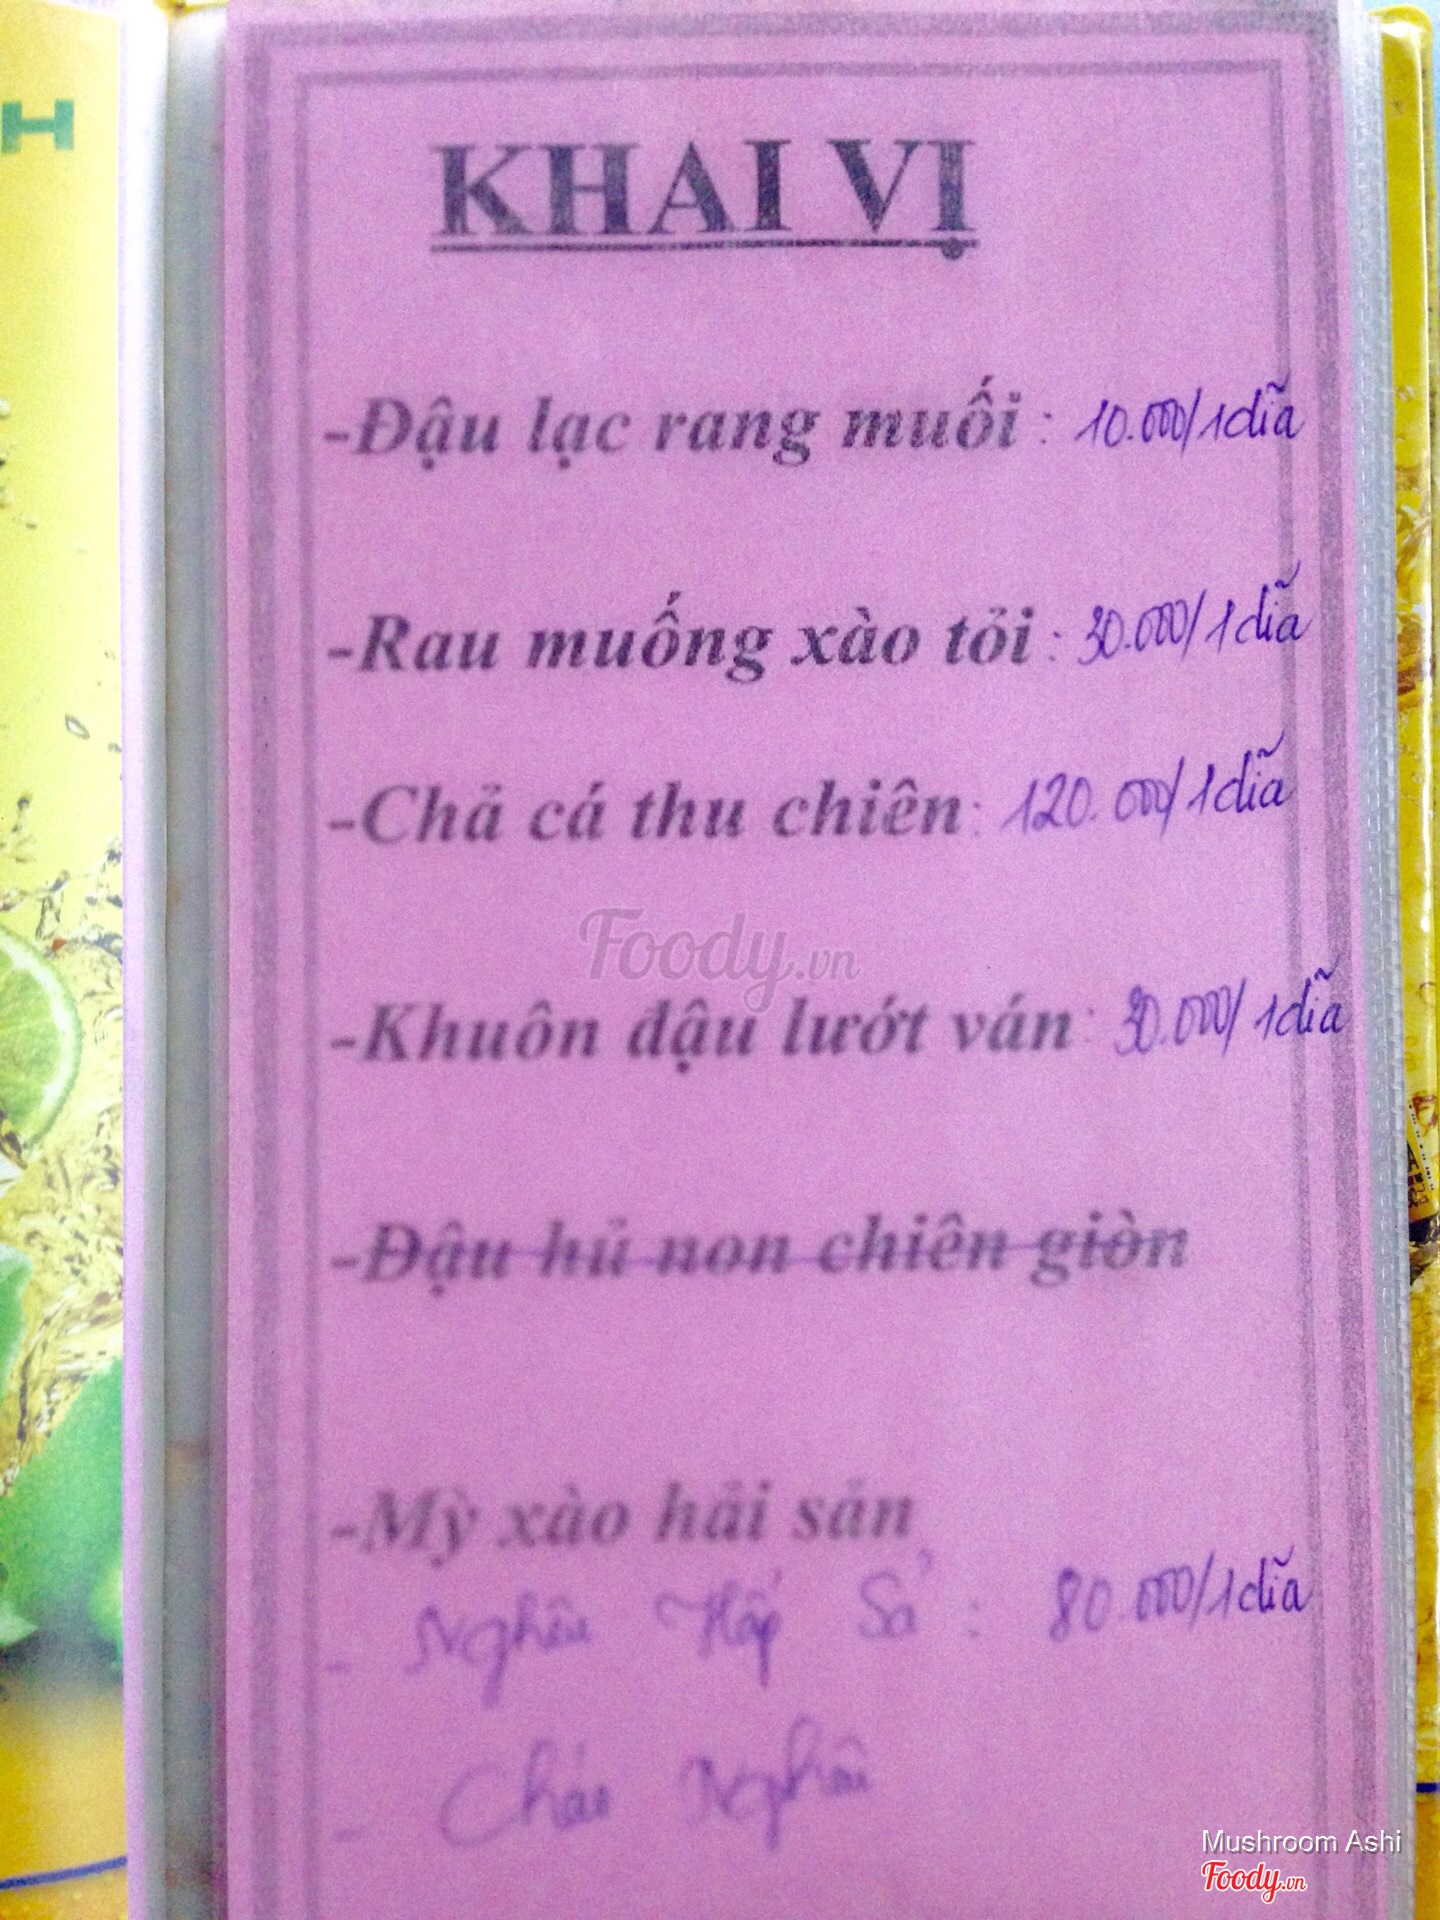 H
KHAI VỊ
-Đậu lạc rang muối : 10.000/1 dĩa
-Rau muống xào tỏi : 30.000/1 dĩa
-Chả cá thu chiên : 120.000/1 dĩa
Foody.vn
-Khuôn đậu lướt ván : 30.000/1 dĩa
-Đậu hủ non chiên giòn
-Mỳ xào hải sản
- Nghêu Hấp Sả : 80.000/1 dĩa
- Cháo Nghêu
Mushroom Ashi
Foody.vn